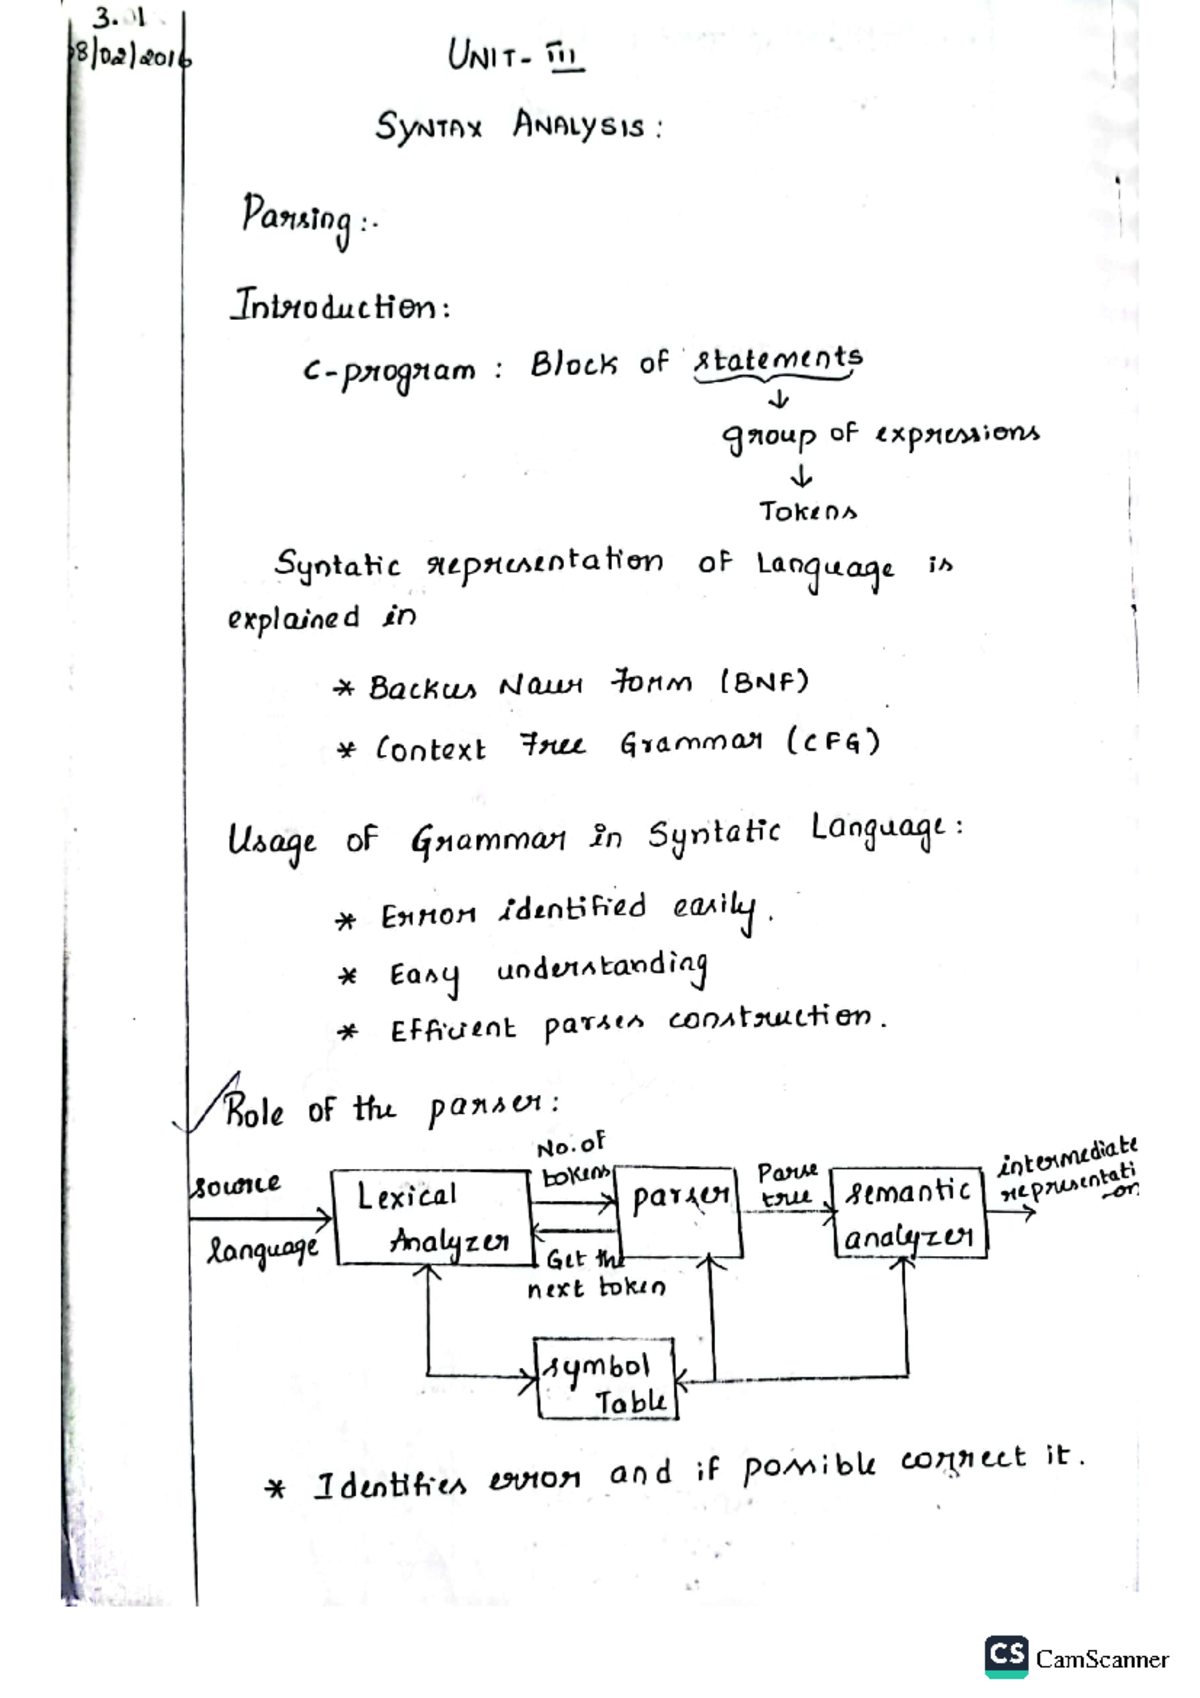 3.1
08/02/2016
UNIT- III
SYNTAX ANALYSIS:
Parsing:-
Introduction:
C-program : Block of statements
↓
group of expressions
↓
Tokens
Syntatic representation of Language is
explained in
* Backus Naur Form (BNF)
* Context Free Grammar (CFG)
Usage of Grammar in Syntatic Language:
* Error identified easily.
* Easy understanding
* Efficient parses construction.
Role of the parser:
source
language
Lexical
Analyzer
No. of
tokens
Get the
next token
parser
Parse
tree
semantic
analyzer
intermediate
representati
-on
symbol
Table
* Identifies error and if possible correct it.
CS CamScanner